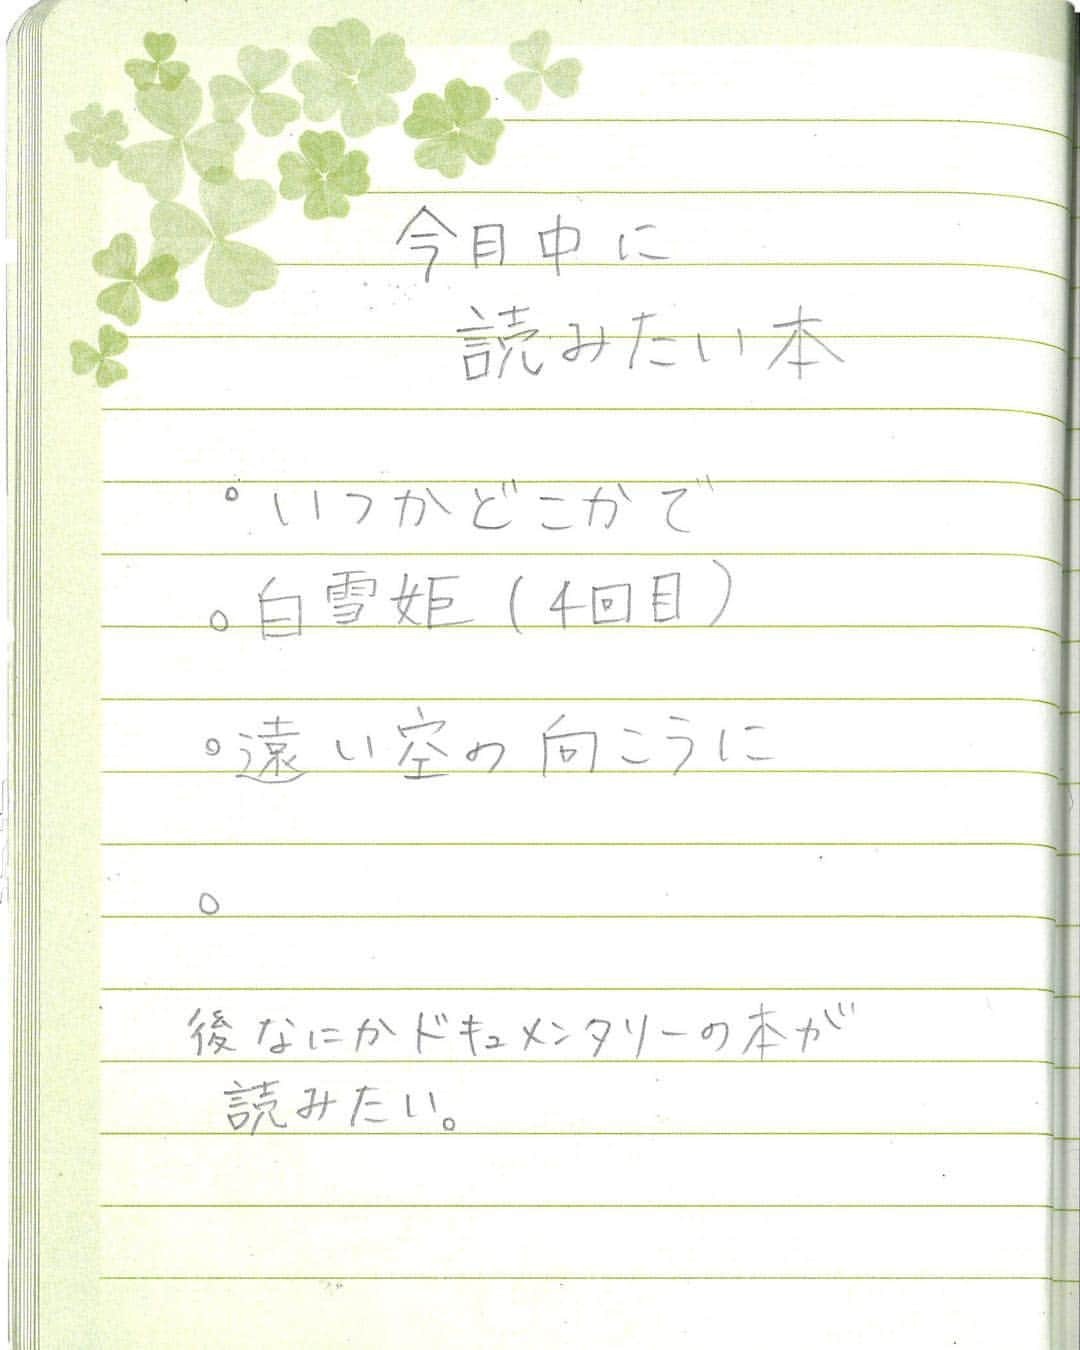 今月中に
読みたい本
。いつかどこかで
。白雪姫(4回目)
。遠い空の向こうに
。
後なにかドキュメンタリーの本が
読みたい。